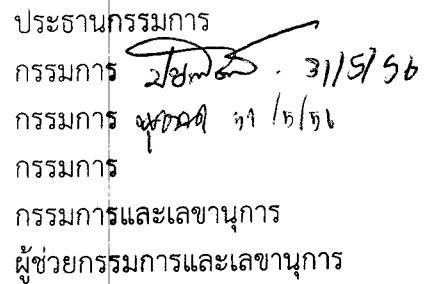 ประธานกรรมการ
กรรมการ 31/5/56
กรรมการ ๓๑ /๕/๕๖
กรรมการ
กรรมการและเลขานุการ
ผู้ช่วยกรรมการและเลขานุการ